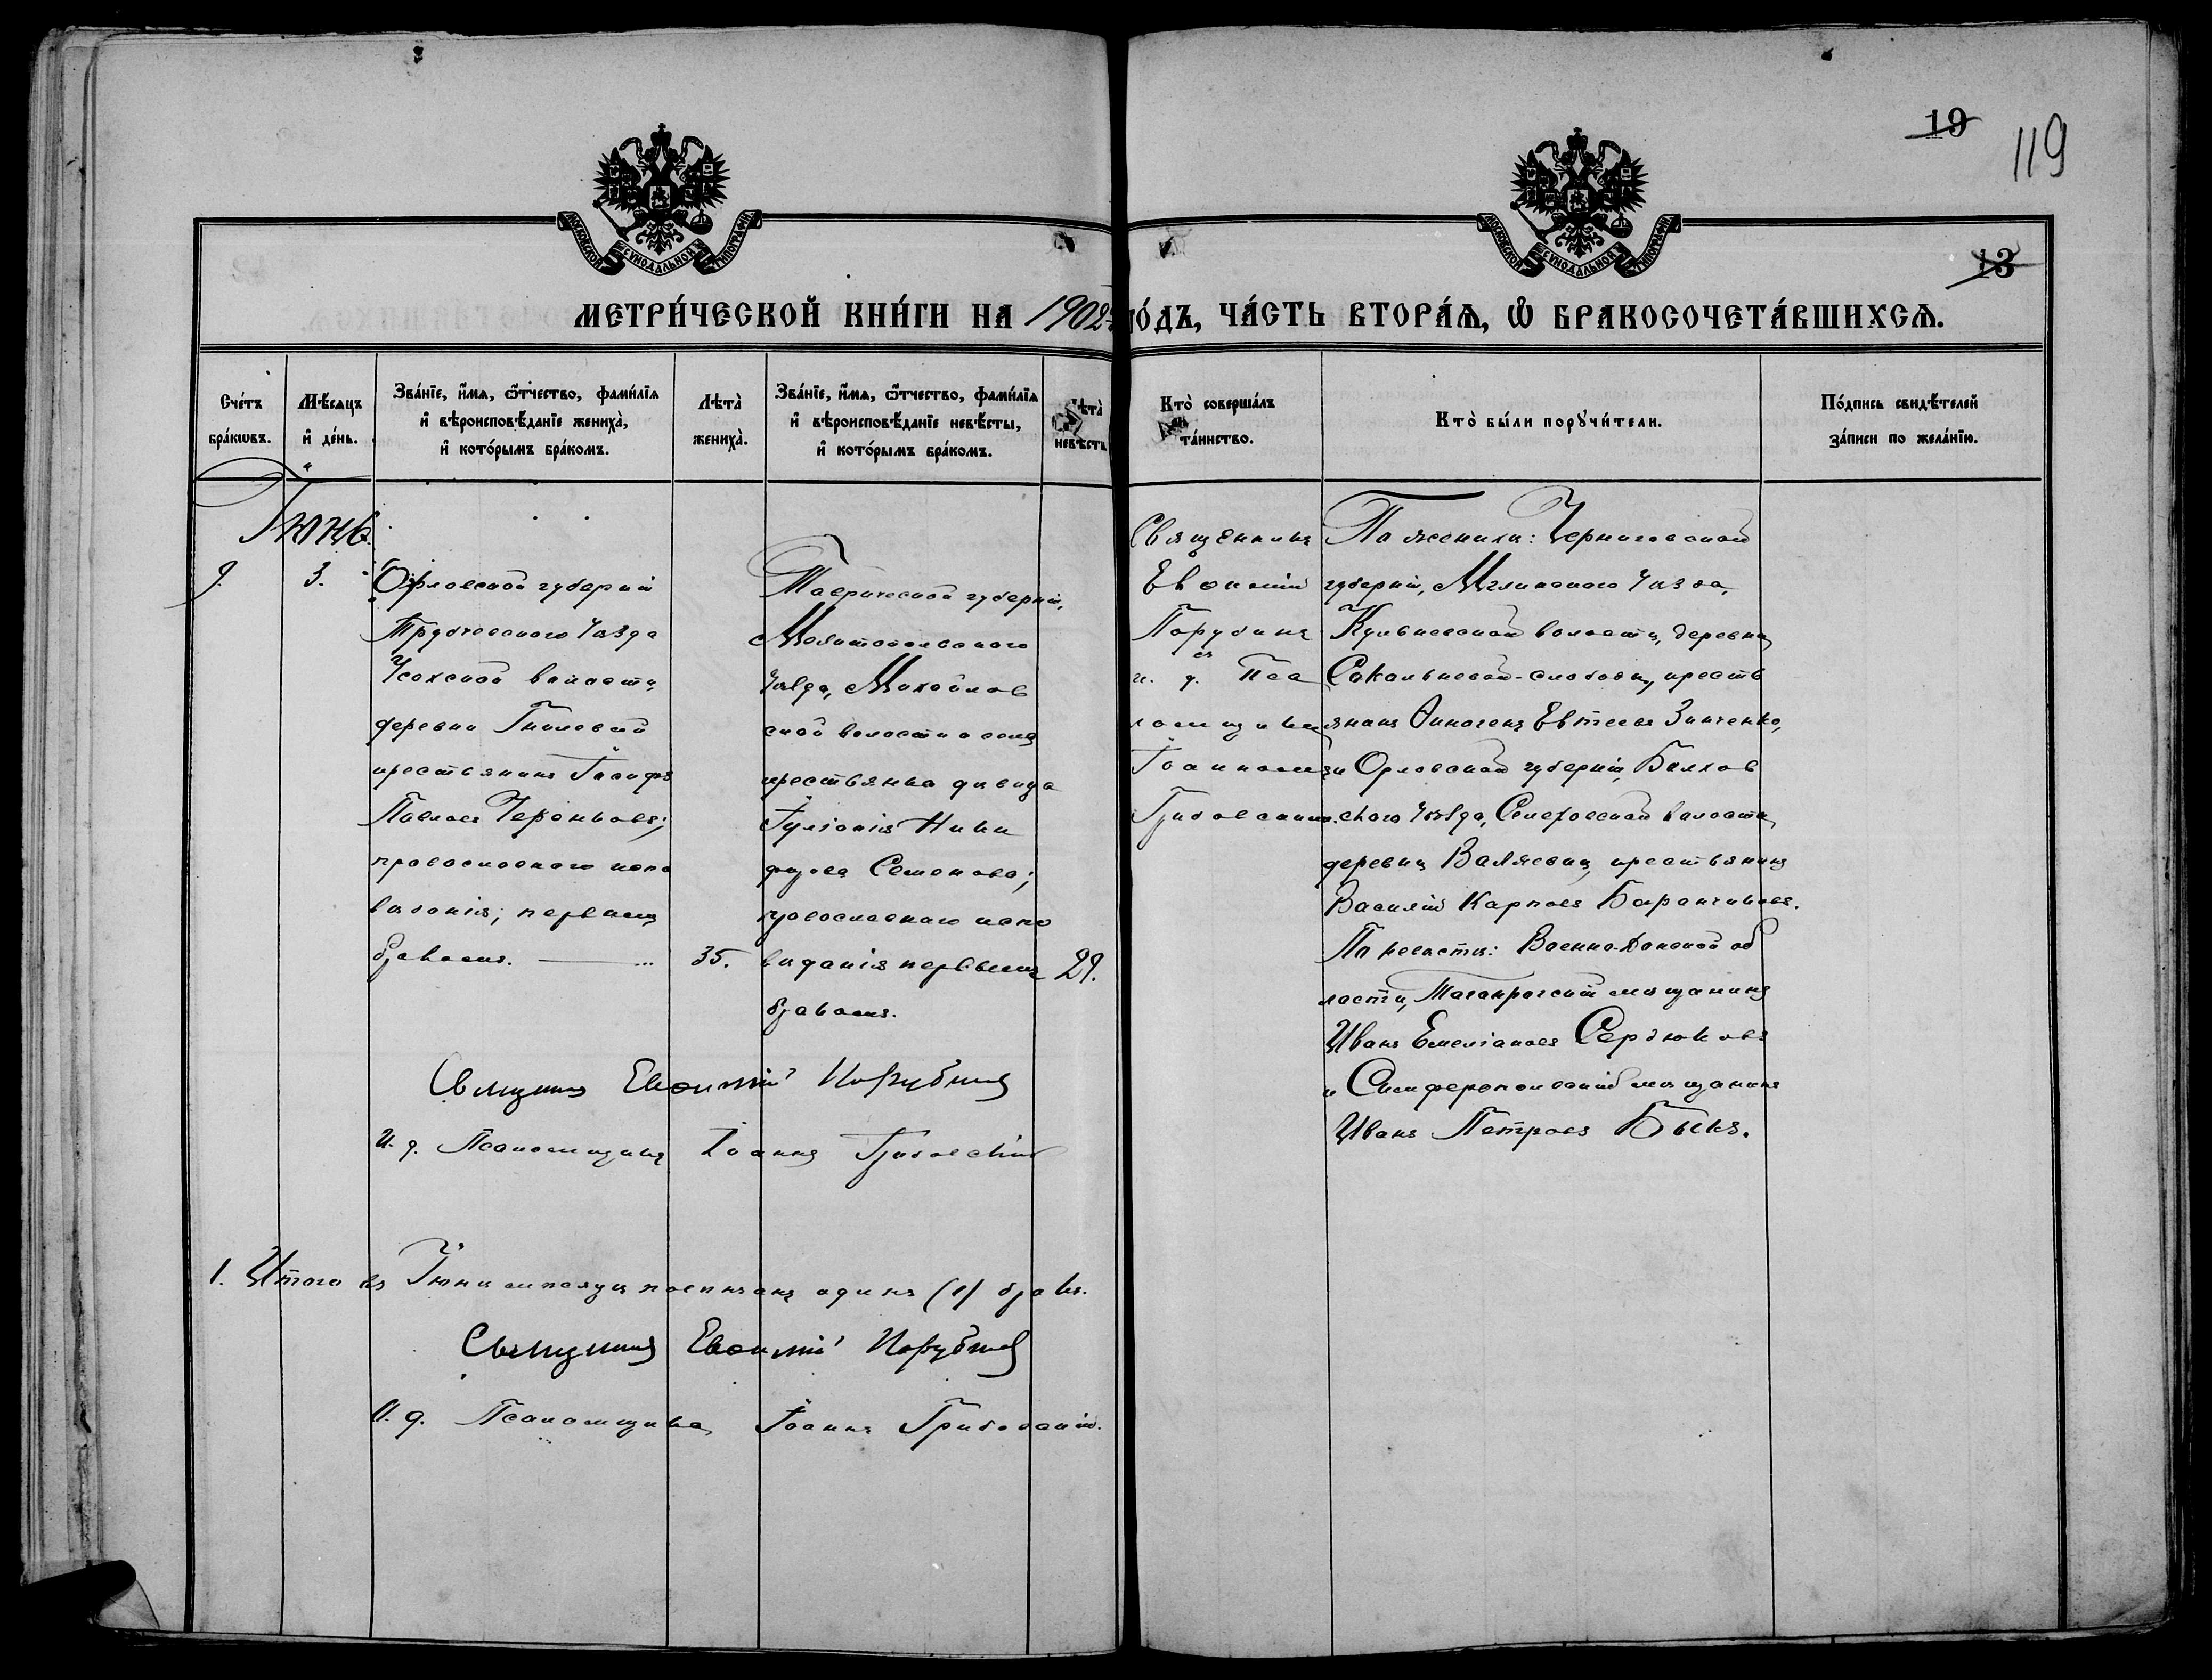 19
119
МОСКОВСКОЙ СѴНОДАЛЬНОЙ ТИПОГРАФІИ
МОСКОВСКОЙ СѴНОДАЛЬНОЙ ТИПОГРАФІИ
13
МЕТРИ́ЧЕСКОЙ КНИ́ГИ НА 1902 ГО́ДЪ, ЧА́СТЬ ВТОРА́Ѧ, Ѽ БРАКОСОЧЕТА́ВШИХСѦ.
Сче́тъ
бра́кѡвъ.
Мѣ́сѧцъ
и҆ де́нь.
Зва́нїе, и҆́мѧ, ѻ҆́тчество, фами́лїѧ
и҆ вѣроисповѣ́данїе жениха̀,
и҆ кото́рымъ бра́комъ.
Лѣта̀
жениха̀.
Зва́нїе, и҆́мѧ, ѻ҆́тчество, фами́лїѧ
и҆ вѣроисповѣ́данїе невѣ́сты,
и҆ кото́рымъ бра́комъ.
Лѣта̀
невѣ́сты
Кто̀ соверша́лъ
та́инство.
Кто̀ бы́ли порꙋчи́тели.
По́дпись свидѣ́телей
за́писи по жела́нїю.
Іюнь.
9.
3.
Орловской губерніи
Трубчевскаго уѣзда
Усохской волости,
деревни
крестьянинъ Іосифъ
Павловъ Череньковъ;
православнаго испо
вѣданія; первымъ
бракомъ.
35.
Таврической губерніи,
Мелитопольскаго
уѣзда, Михайлов
ской волости и села
крестьянка дѣвица
Іуліанія Ники
форова Семенова;
православнаго испо
вѣданія первымъ
бракомъ.
29.
Священникъ
Евѳимій
Порубинъ
съ
и. д. Пса
ломщика
Іоанномъ
Грибовскимъ.
По женихѣ: Черниговской
губерніи, Мглинскаго уѣзда,
волости, деревни
слободы, кресть
янинъ Евтеевъ Зинченко,
и Орловской губерніи, Болхов
скаго уѣзда, волости,
деревни крестьянинъ
Василій Карповъ Баранчиковъ.
По невѣстѣ: Военно-Донской об
ласти, Таганрогскій мѣщанинъ
Иванъ Емеліановъ Сердюковъ
и Симферопольскій мѣщанинъ
Иванъ Петровъ Быкъ.
Священникъ Евѳимій Порубинъ
И. д. Псаломщика Іоаннъ Грибовскій
1. Итого въ Іюнѣ мѣсяцѣ повѣнчанъ одинъ (1) бракъ.
Священникъ Евѳимій Порубинъ
И. д. Псаломщика Іоаннъ Грибовскій.